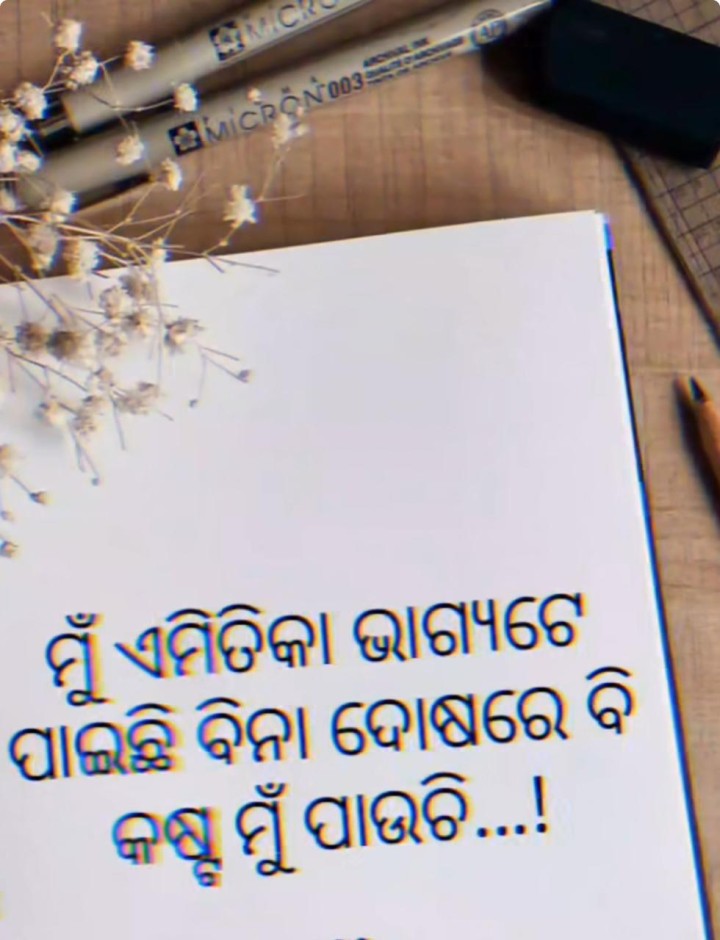 MICRO
MICRON 003 ARCHIVAL INK
ମୁଁ ଏମିତିକା ଭାଗ୍ୟଟେ
ପାଇଛି ବିନା ଦୋଷରେ ବି
କଷ୍ଟ ମୁଁ ପାଉଚି...!